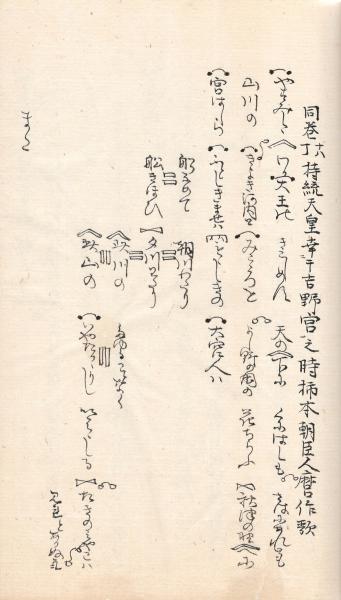 同巻丁六持統天皇幸于吉野宮之時柿本朝臣人麿作歌
やすみしゝ わが大王の きこしめす 天の下に くにはしも さはにあれども
山川の きよき河内と みこゝろを よし野の国の 花ちらふ 秋津の野辺に
宮はしら ふとしきませは もゝしきの 大宮人ハ
船なめて 朝川わたり
船きほひ 夕川わたり
此川の たゆることなく
此山の いやたかゝらし いはゝしる たきのみやこハ
見れとあかぬかも
また